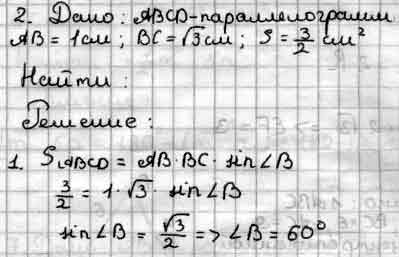 2. Дано: ABCD-параллелограмм
AB = 1 см; BC = √3 см; S = 3/2 см²
Найти:
Решение:
1. S ABCD = AB · BC · sin∠B
3/2 = 1 · √3 · sin∠B
sin∠B = √3/2 => ∠B = 60°